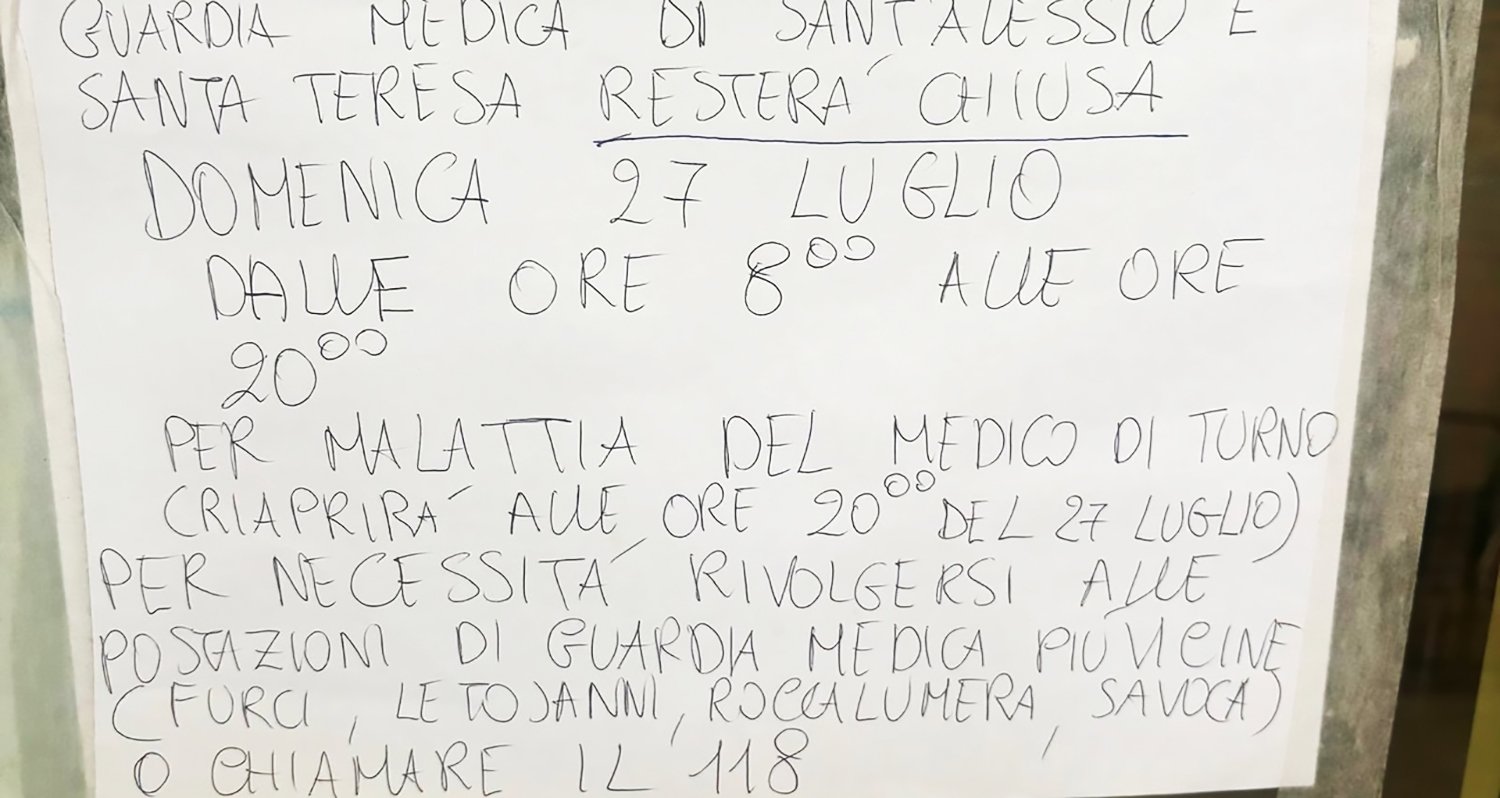 GUARDIA MEDICA DI SANT'ALESSIO E
SANTA TERESA RESTERA' CHIUSA
DOMENICA 27 LUGLIO
DALLE ORE 8⁰⁰ ALLE ORE
20⁰⁰
PER MALATTIA DEL MEDICO DI TURNO
(RIAPRIRA' ALLE ORE 20⁰⁰ DEL 27 LUGLIO)
PER NECESSITA' RIVOLGERSI ALLE
POSTAZIONI DI GUARDIA MEDICA PIÙ VICINE
(FURCI, LETOJANNI, ROCCALUMERA, SAVOCA)
O CHIAMARE IL 118